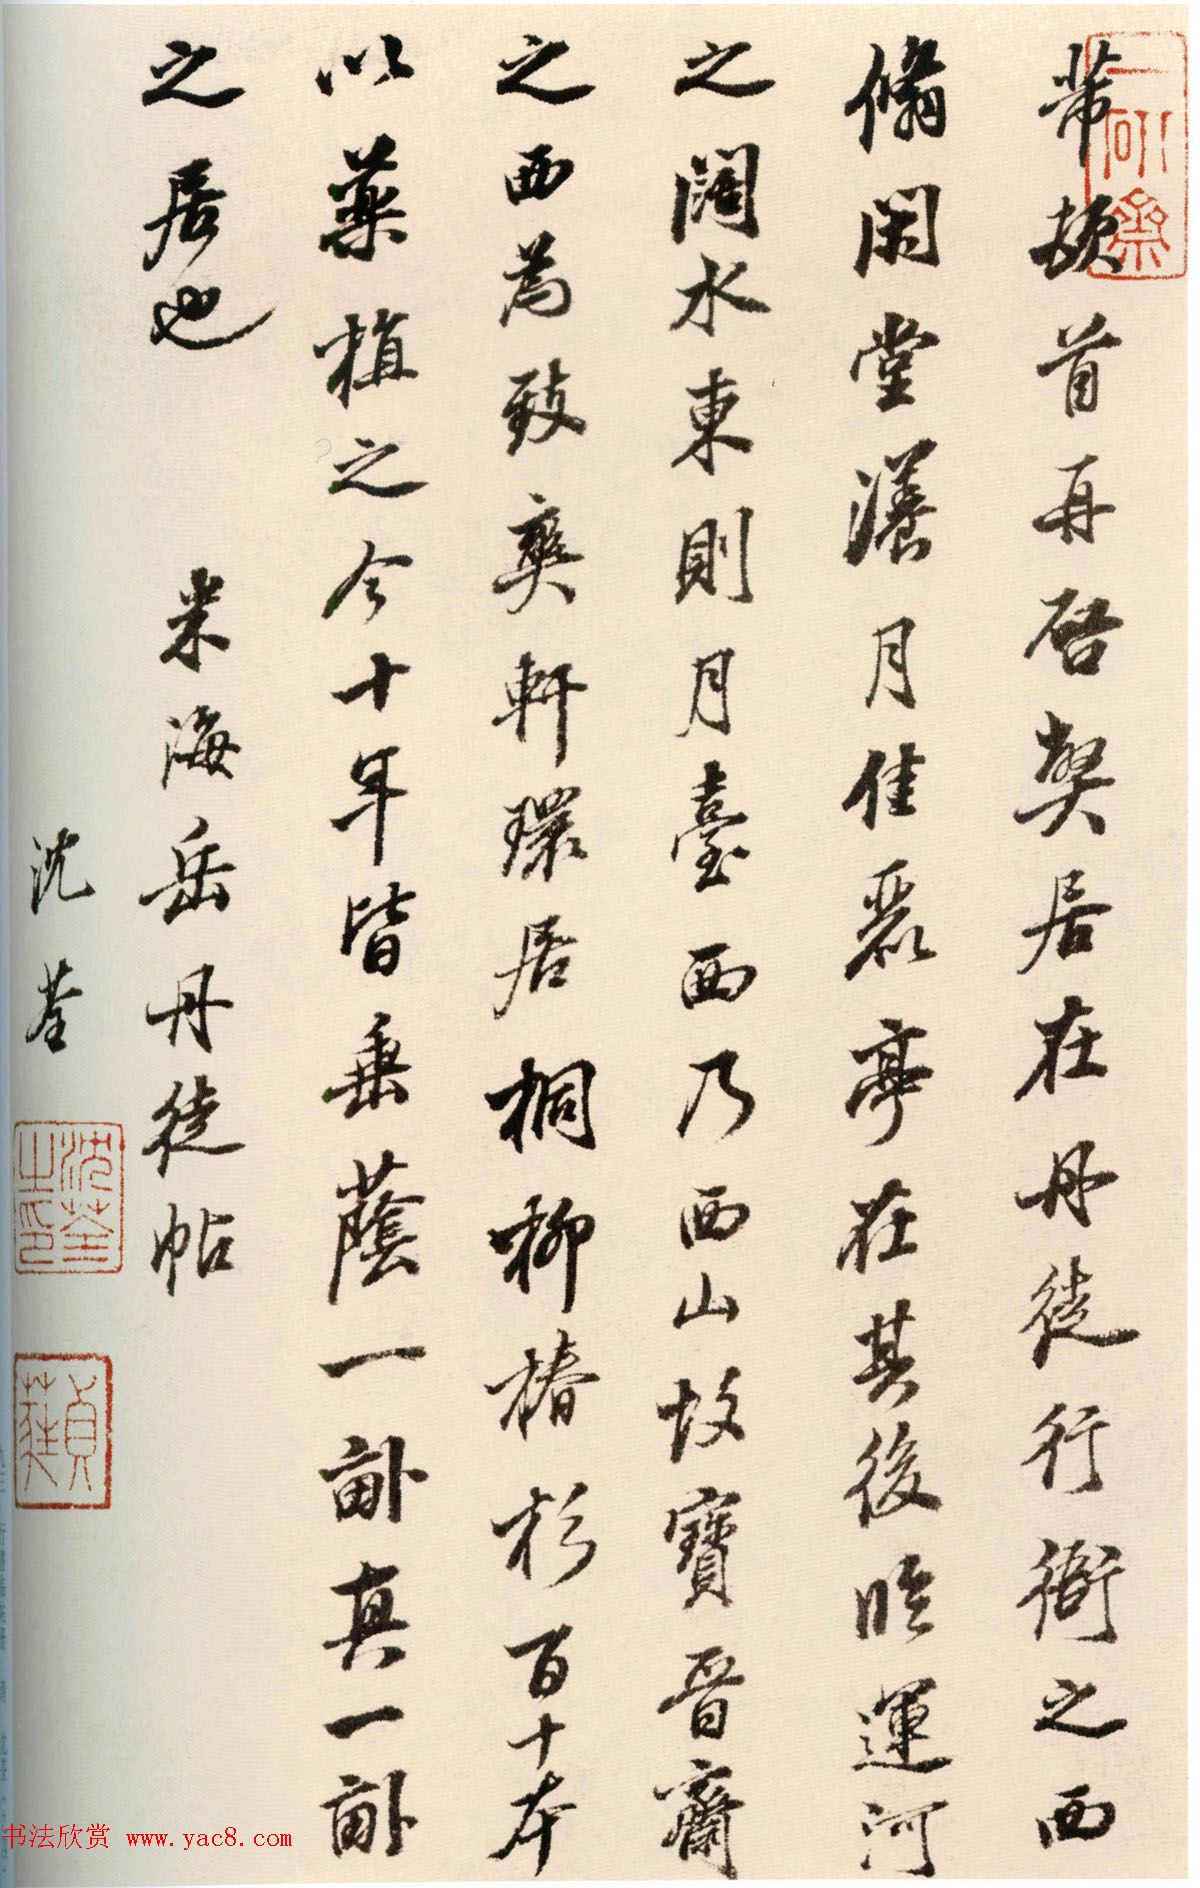 芾頓首再啓弊居在丹徒行衙之西
翛閑堂漾月佳麗亭在其後臨運河
之闊水東則月臺西乃西山故寶晉齋
之西為致爽軒環居桐柳椿杉百十本
以藥植之今十年皆垂蔭一畝真一畝
之居也
米海岳丹徒帖
沈荃
一研齋
沈荃之印
貞蕤
书法欣赏 www.yac8.com